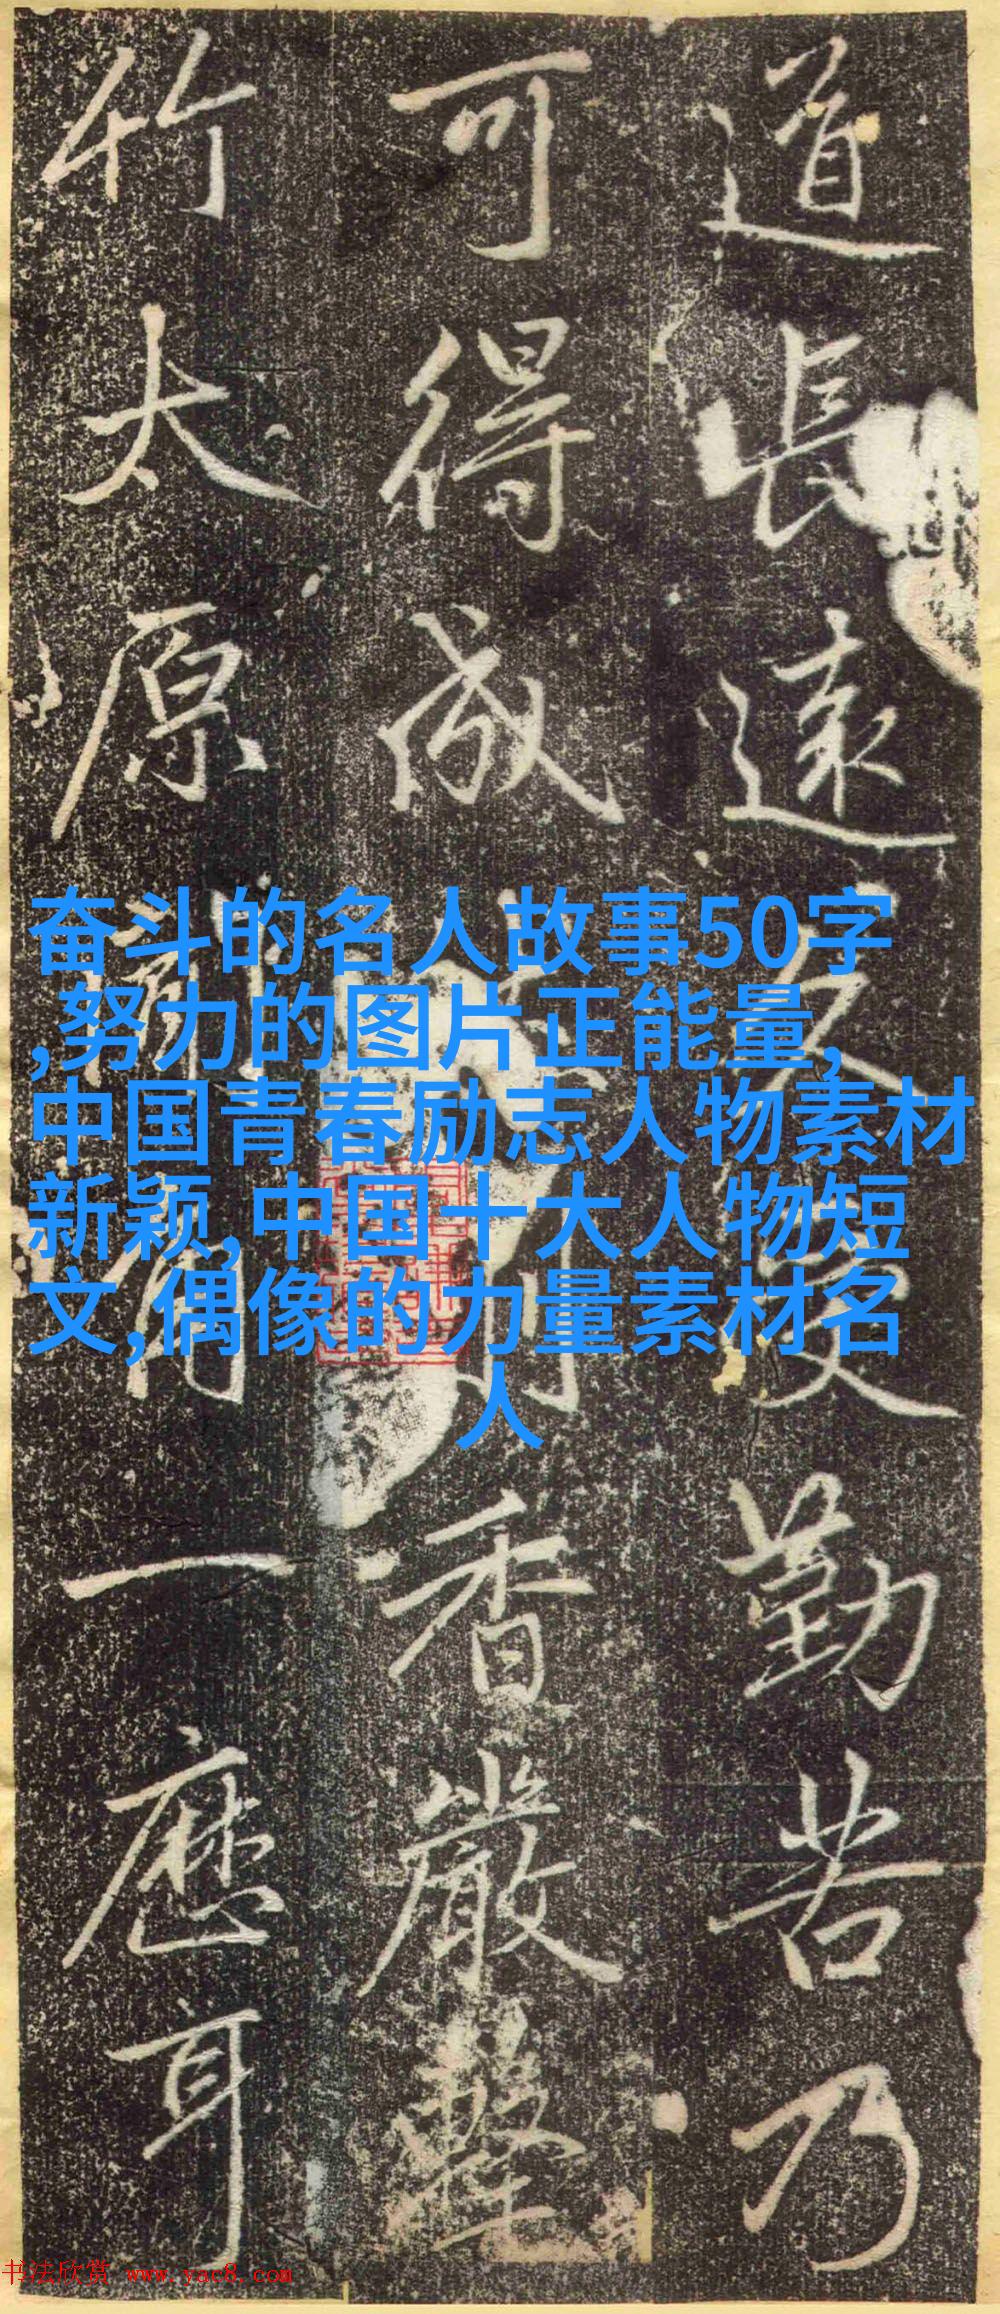 道長遠久受勤苦乃
可得成香嚴擊
竹太原一應耳
奋斗的名人故事50字
,努力的图片正能量,
中国青春励志人物素材
新颖,中国十大人物短
文,偶像的力量素材名
人
书法欣赏 www.yac8.com